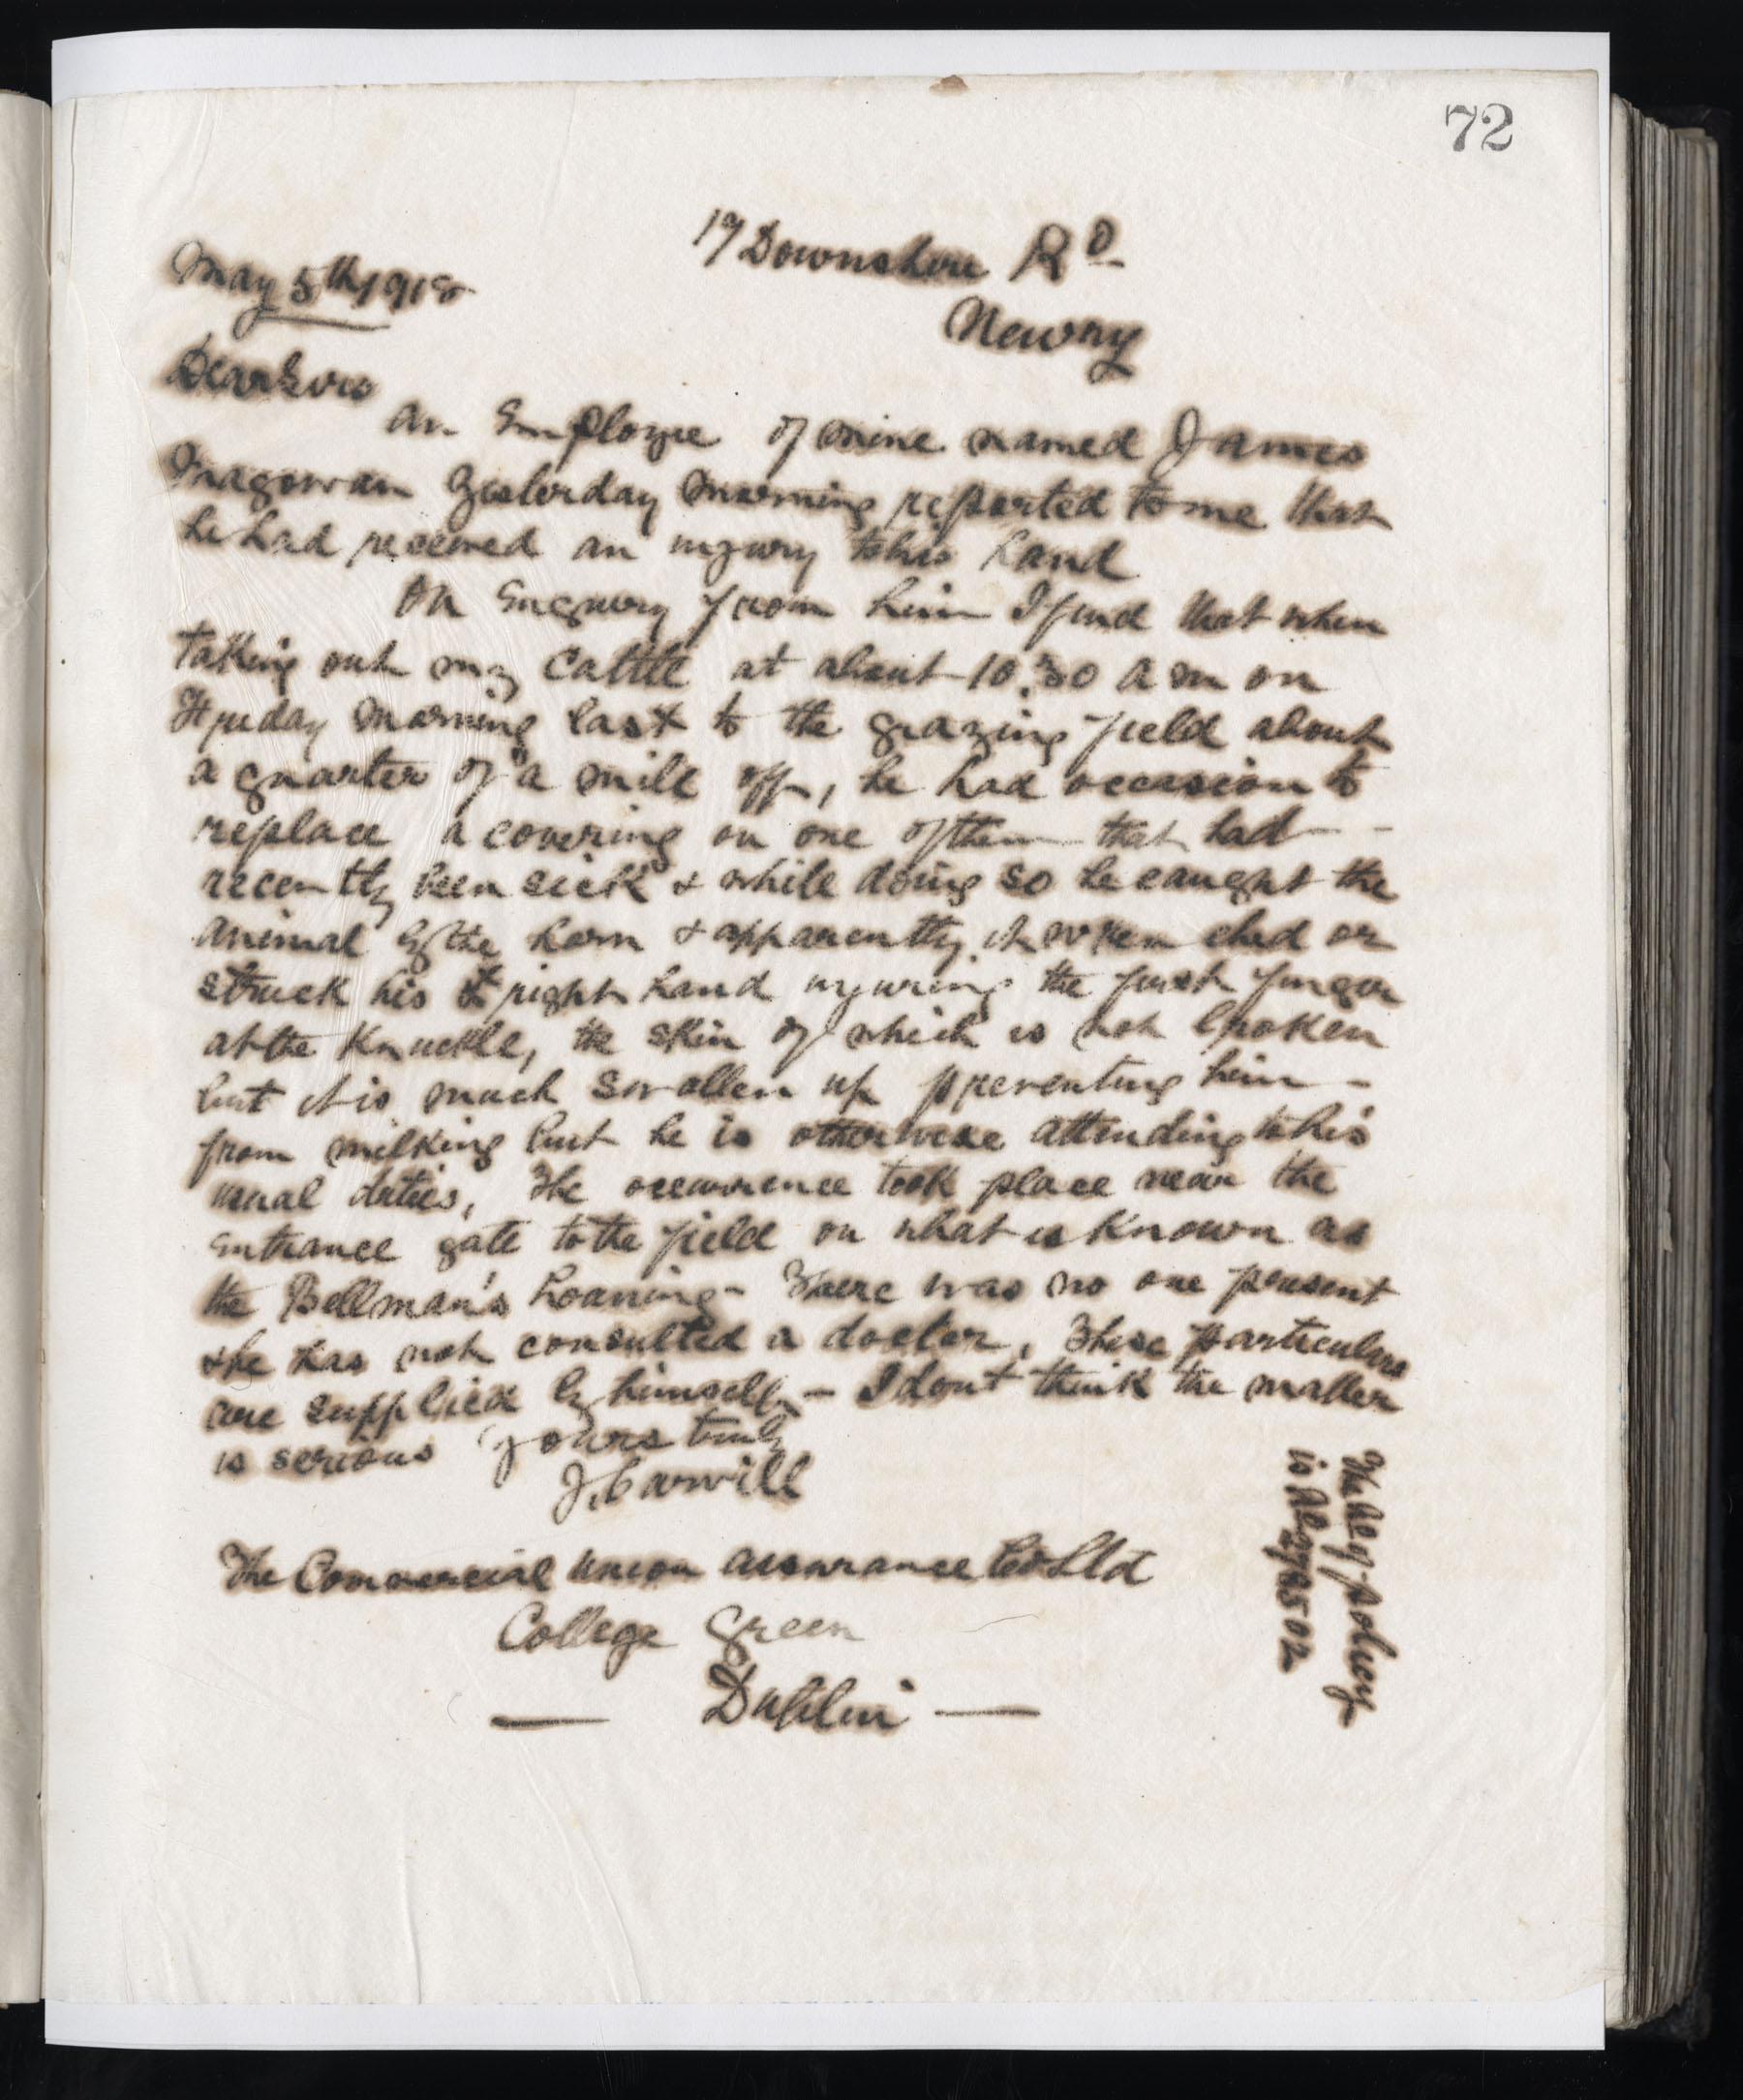 72
17 Downshire Rd
May 5th 1918
Newry
Dear Sirs
An Employee of mine named James
Magowan yesterday morning reported to me that
he had received an injury to his hand
On Enquiry from him I find that when
taking out my cattle at about 10.30 a m on
Friday morning last to the grazing field about
a quarter of a mile off, he had occasion to
replace a covering on one of them that had -
recently been sick & while doing so he caught the
animal by the horn & apparently it wrenched or
struck his right hand injuring the first finger
at the Knuckle, the skin of which is not broken
but it is much swollen up preventing him -
from milking but he is otherwise attending to his
usual duties, The occurrence took place near the
entrance gate to the field on what is Known as
the Bellman's Loaning - There was no one present
& he has not consulted a doctor, These particulars
are supplied by himself - I dont think the matter
is serious yours truly
J. Carvill
The Commercial Union Assurance Co Ltd
College Green
— Dublin —
The of policy
is